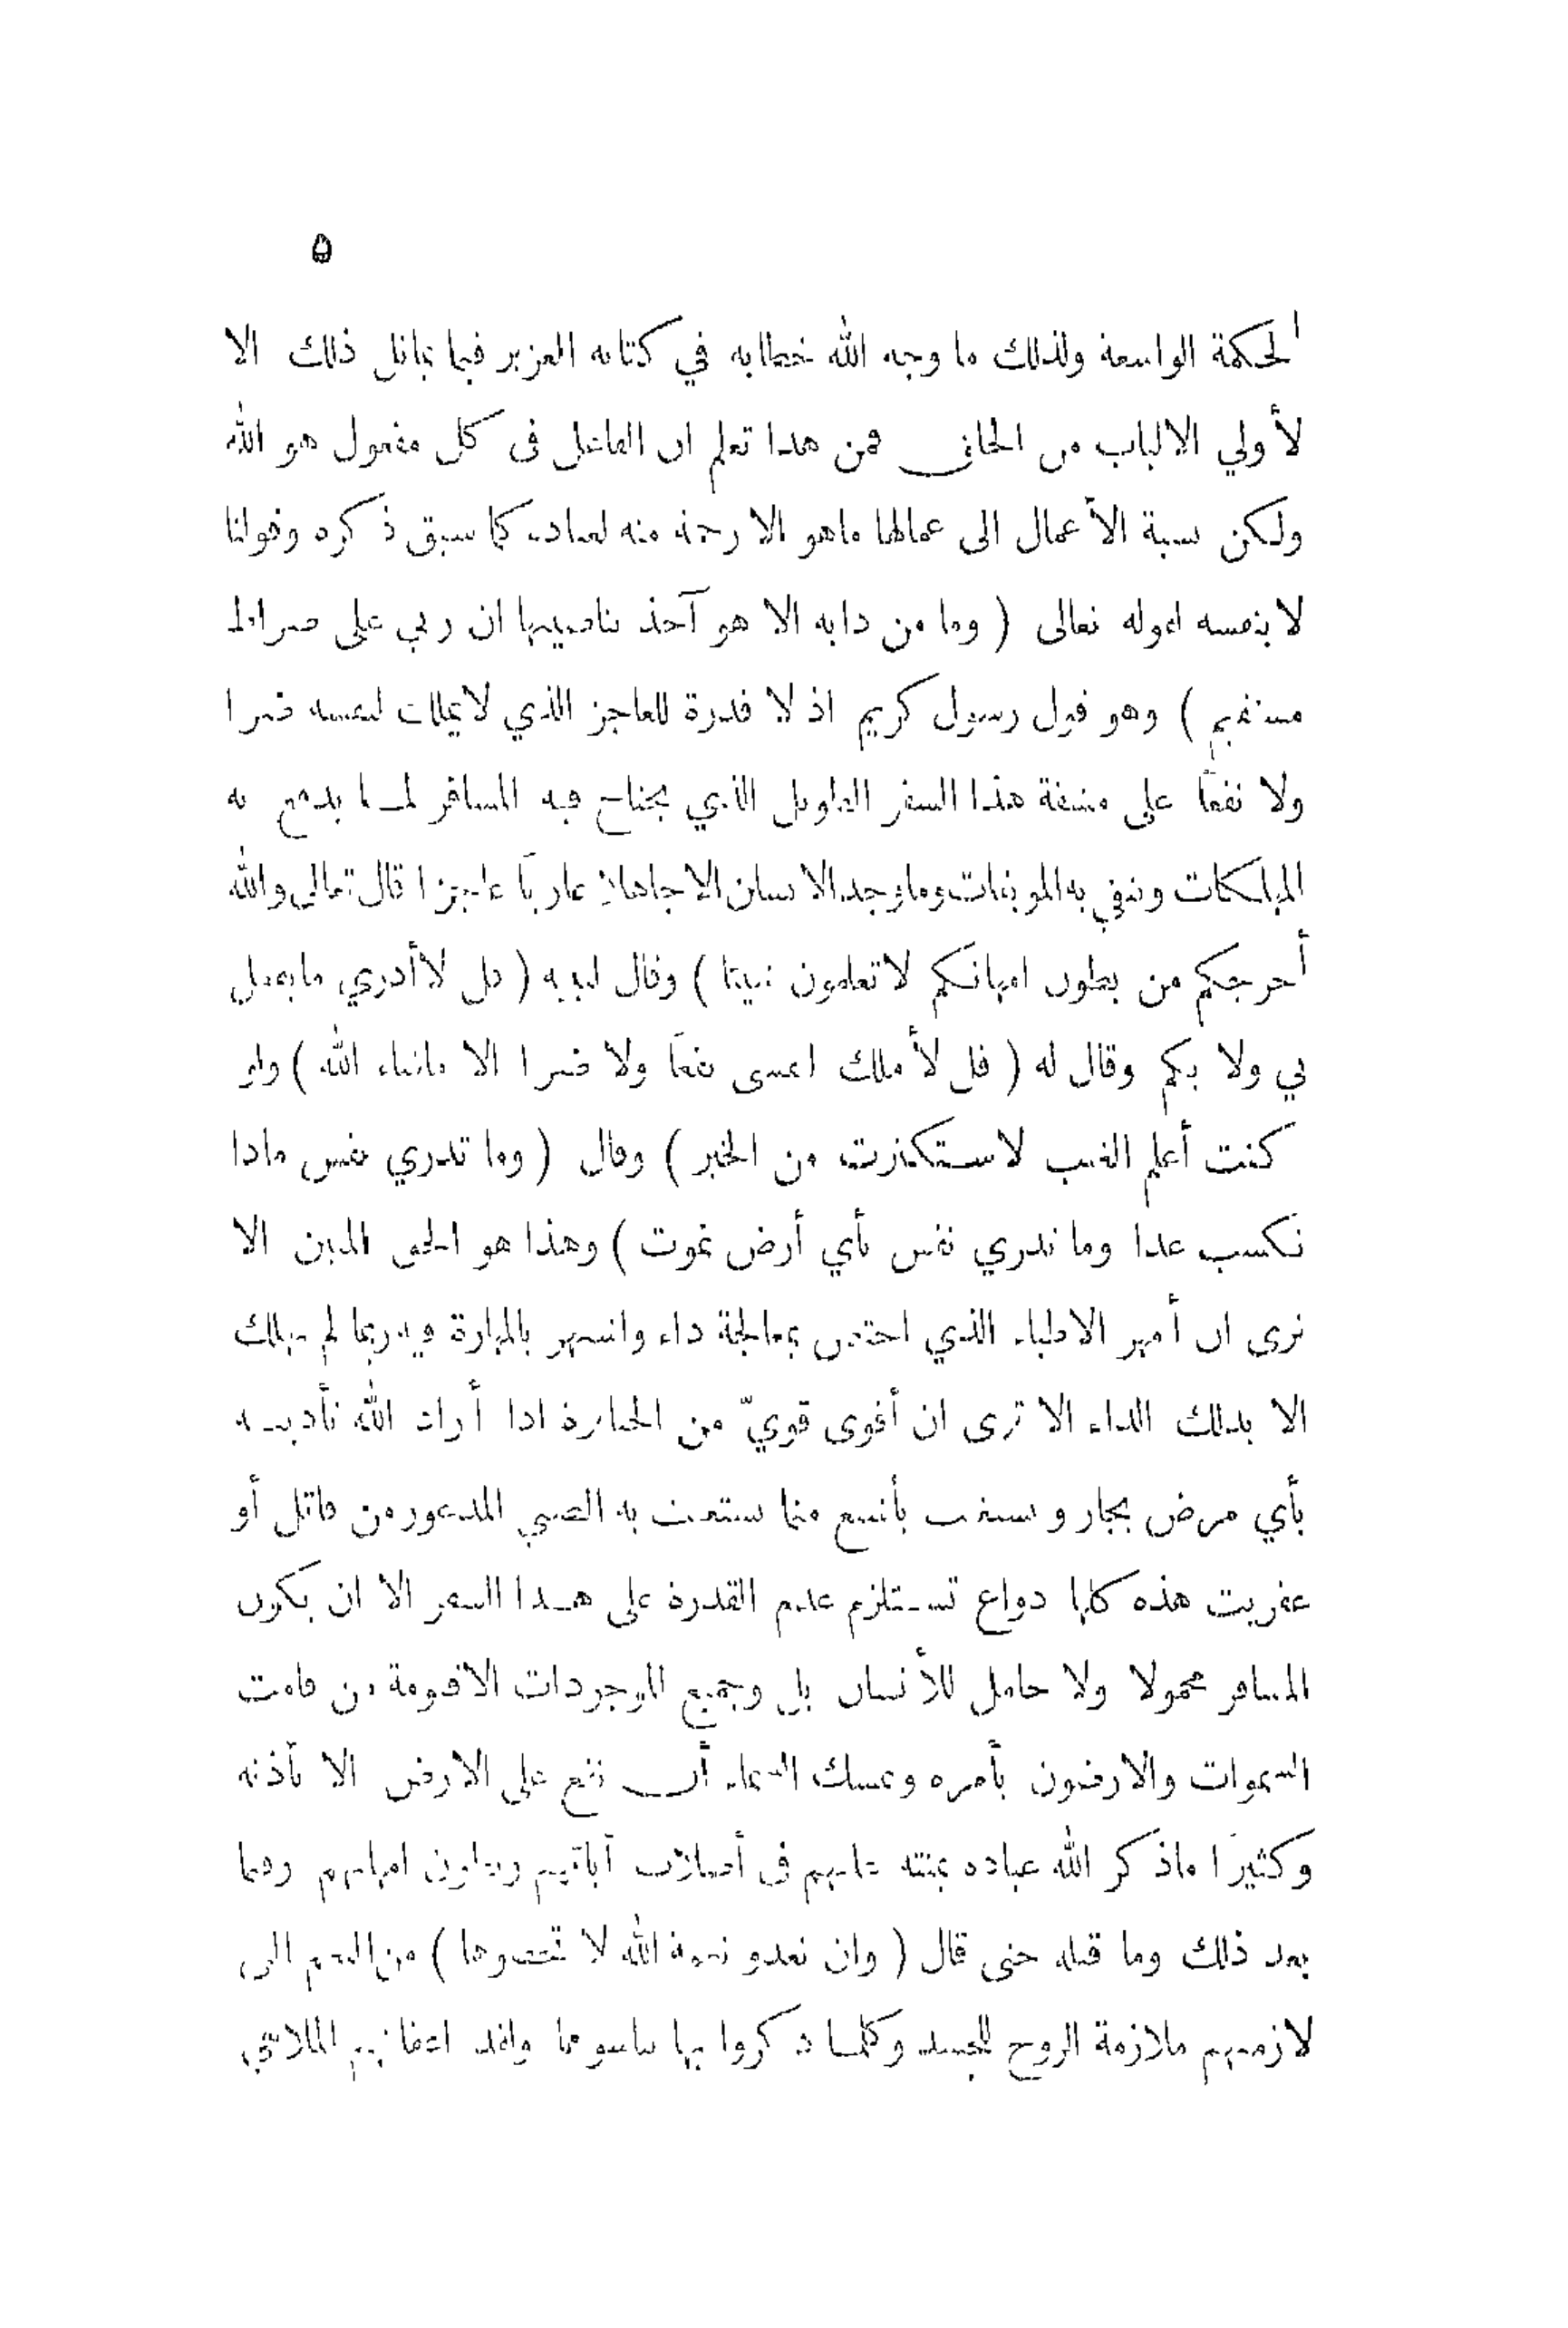 ٥
الحكمة الواسعة ولذلك ما وجه الله خطابه في كتابه العزيز فيما يماثل ذلك الا
لأولي الالباب من الخلق فمن هذا تعلم ان الفاعل في كل مفعول هو الله
ولكن نسبة الأعمال الى عمالها ماهو الا رحمة منه لعباده كما سبق ذكره وقولنا
لا بنفسه لقوله تعالى ( وما من دابه الا هو آخذ بناصيتها ان ربي على صراط
مستقيم ) وهو قول رسول كريم اذ لا قدرة للعاجز الذي لا يملك لنفسه ضرا
ولا نفعاً على مشقة هذا السفر الطويل الذي يحتاج فيه المسافر لما يدفع به
المهلكات ويتقي به الموبقات وما وجد الانسان الا جاهلا عارياً عاجزا قال تعالى والله
أخرجكم من بطون امهاتكم لا تعلمون شيئا ) وقال لنبيه ( قل لا أدري ما يفعل
بي ولا بكم وقال له ( قل لا أملك لنفسي نفعاً ولا ضرا الا ماشاء الله ) ولو
كنت أعلم الغيب لاستكثرت من الخير ) وقال ( وما تدري نفس ماذا
تكسب غدا وما تدري نفس بأي أرض تموت ) وهذا هو الحق المبين الا
ترى ان أمهر الاطباء الذي اختص بمعالجة داء واشتهر بالمهارة فيه ربما لم يهلك
الا بذلك الداء الا ترى ان أقوى قويّ من الجبابرة اذا أراد الله تأديبه
بأي مرض يجار ويستغيث بأشنع مما يستغيث به الصبي المذعور من قاتل أو
عفريت هذه كلها دواع تستلزم عدم القدرة على هذا السفر الا ان يكون
المسافر محمولا ولا حامل للأنسان بل وجميع الموجودات الا قيومة من قامت
السموات والارضون بأمره ويمسك السماء أن تقع على الارض الا بأذنه
وكثيراً ماذكر الله عباده بمنته عليهم في أصلاب آبائهم وبطون امهاتهم وفيما
بعد ذلك وما قبله حتى قال ( وان تعدو نعمة الله لا تحصوها ) من النعم التي
لازمتهم ملازمة الروح للجسد وكلما ذكروا بها